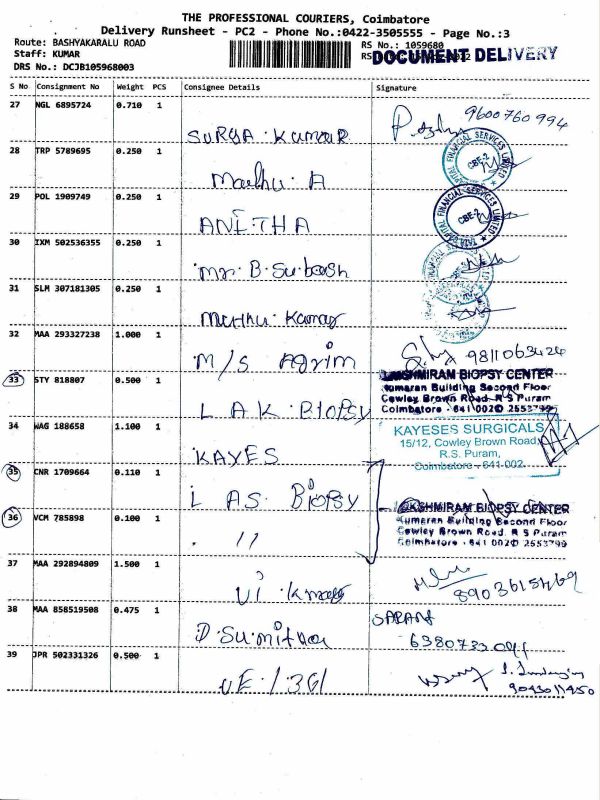 THE PROFESSIONAL COURIERS, Coimbatore
Delivery Runsheet - PC2 - Phone No.:0422-3505555 - Page No.:3
Route: BASHYAKARALU ROAD
RS No.: 1059680
Staff: KUMAR
DOCUMENT DELIVERY
DRS No.: DCJB105968003
S No Consignment No Weight PCS Consignee Details Signature
27 NGL 6895724 0.710 1
SURYA KUMAR 9600760994
28 TRP 5789695 0.250 1
Madhu. A
CAPITAL FINANCIAL SERVICES LIMITED CBE-2
29 POL 1909749 0.250 1
ANITHA
TATA CAPITAL FINANCIAL SERVICES LIMITED CBE-2
30 IXM 502536355 0.250 1
Mr. B. Subash
31 SLM 307181305 0.250 1
Kumar
32 MAA 293327238 1.000 1
M/S Agrim 9811063424
33 STY 818807 0.500 1
L A K. BIOPSY
LAKSHMIRAM BIOPSY CENTER
Kumaran Building Second Floor
Cowley Brown Road R S Puram
Coimbatore - 641 002 ✆ 2553799
34 WAG 188658 1.100 1
KAYES
KAYESES SURGICALS
15/12, Cowley Brown Road,
R.S. Puram,
Coimbatore - 641 002
35 CNR 1709664 0.110 1
L AS. BIOPSY
36 VCM 785898 0.100 1
. 11
LAKSHMIRAM BIOPSY CENTER
Kumaran Building Second Floor
Cowley Brown Road. R S Puram
Coimbatore - 641 002 ✆ 2553799
37 MAA 292894809 1.500 1
8903615469
38 MAA 858519508 0.475 1
D. Sumithra
39 JPR 502331326 0.500 1